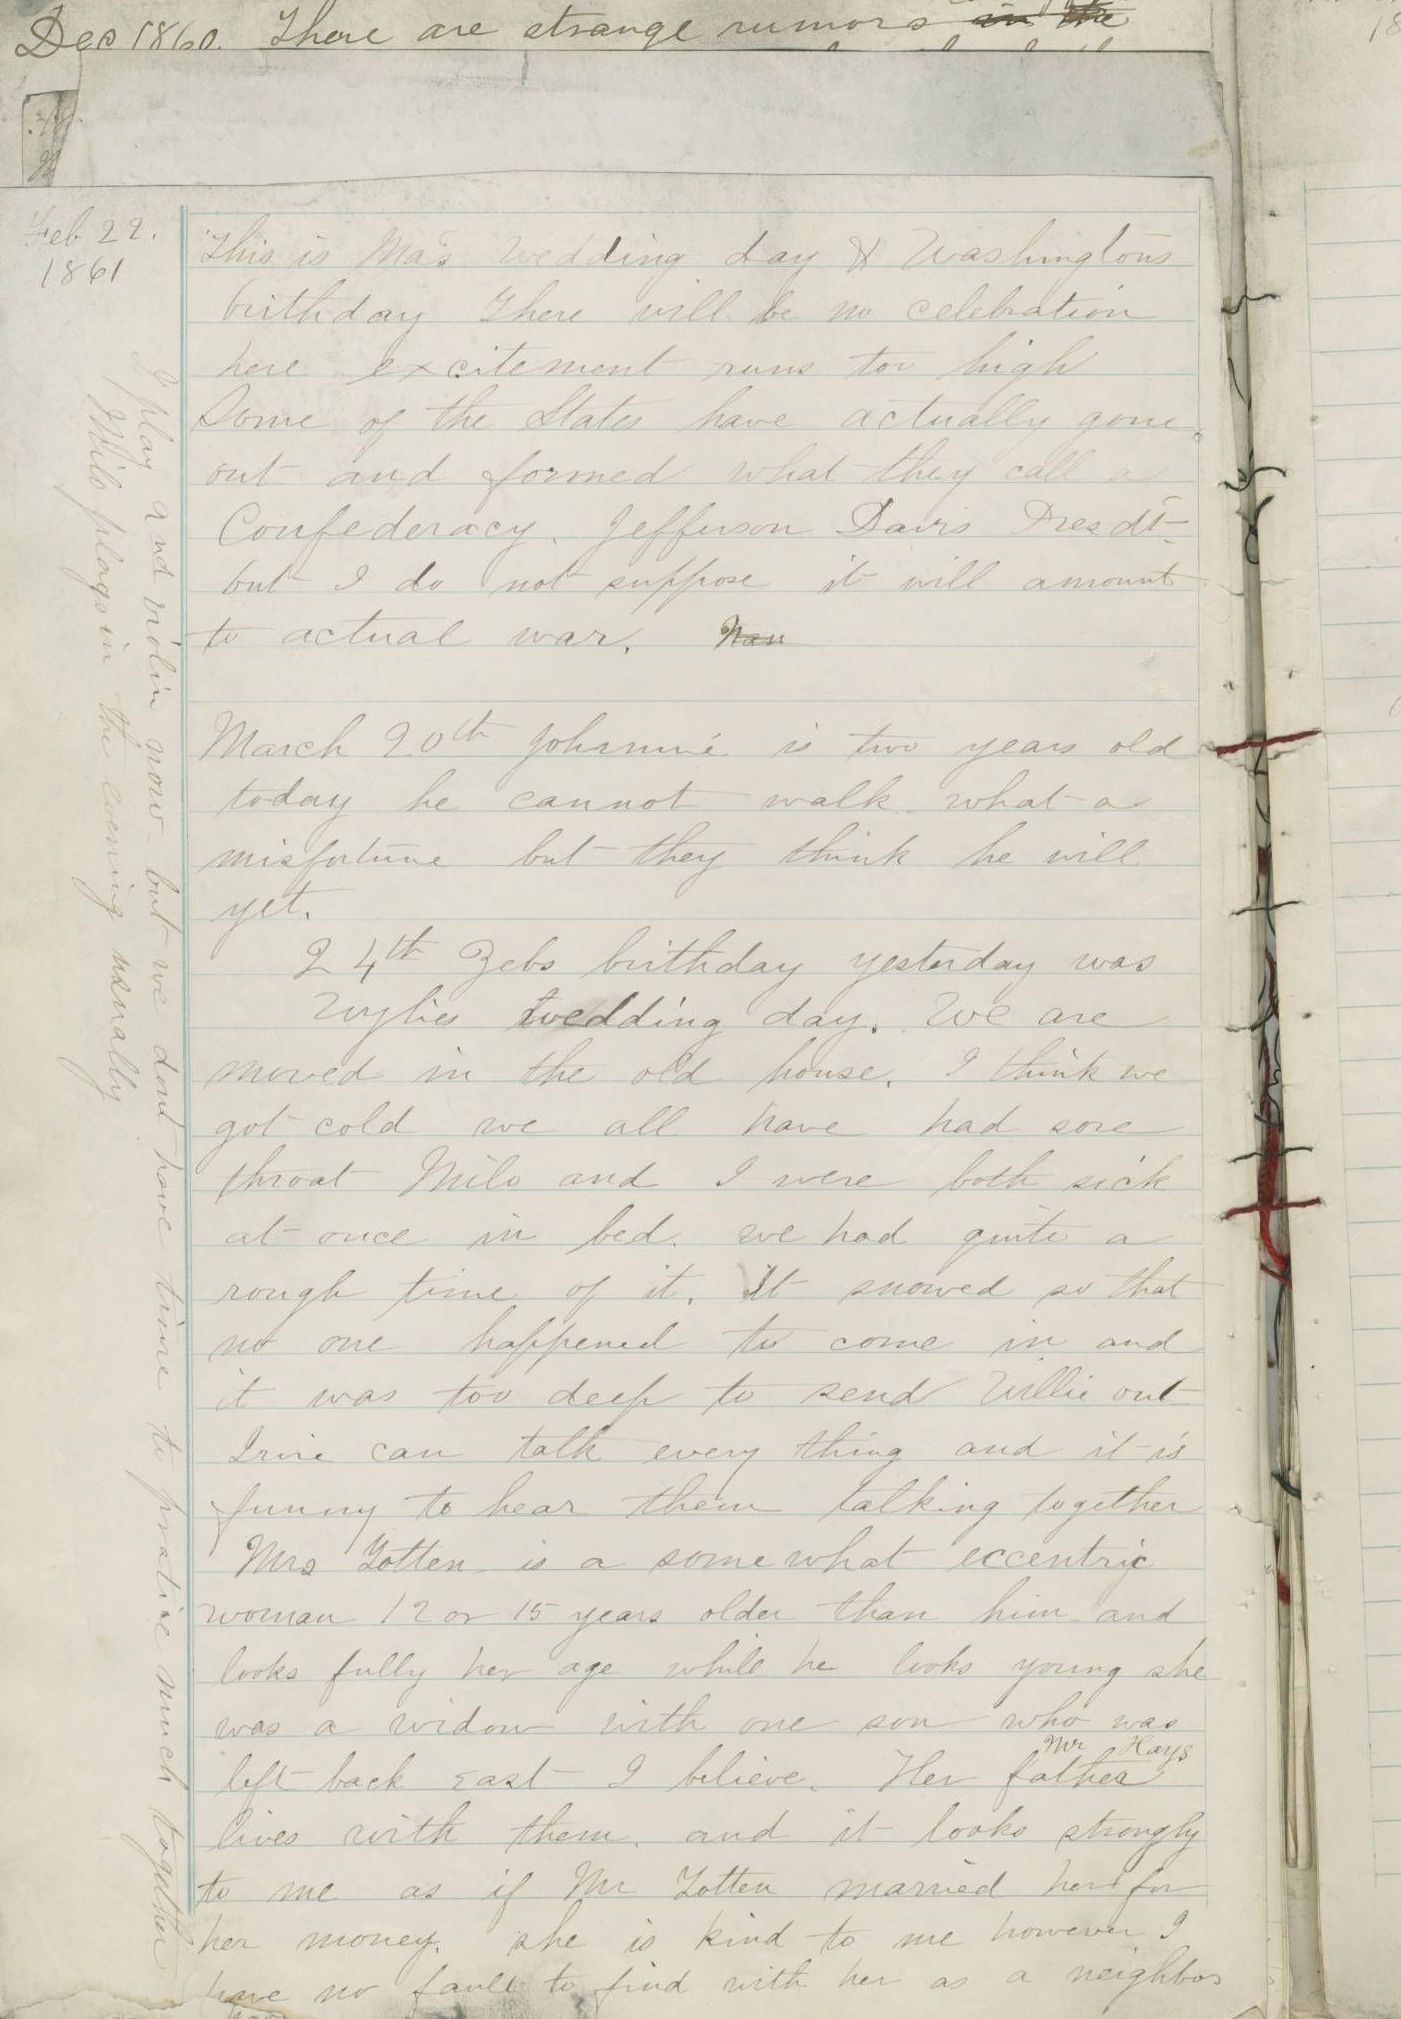 Dec 1860. There are strange rumors in the
Feb 22.
1861
This is Ma's wedding day & Washingtons
birthday There will be no celebration
here excitement runs too high
Some of the States have actually gone
out and formed what they call a
Confederacy. Jefferson Davis Presdt
but I do not suppose it will amount
to actual war.
March 20th Johnnie is two years old
today he cannot walk what a
misfortune but they think he will
yet.
24th Zebs birthday yesterday was
Wylies wedding day. We are
moved in the old house. I think we
got cold we all have had sore
throat Milo and I were both sick
at once in bed. we had quite a
rough time of it. It snowed so that
no one happened to come in and
it was too deep to send Willie out
Irvie can talk every thing and it is
funny to hear them talking together
Mrs Totten is a somewhat eccentric
woman 12 or 15 years older than him and
looks fully her age while he looks young she
was a widow with one son who was
left back east I believe. Her father Mr Hays
lives with them. and it looks strongly
to me as if Mr Totten married her for
her money. she is kind to me however I
have no fault to find with her as a neighbor
I play 2nd violin now but we dont have time to practice much together
Milo plays in the evening usually